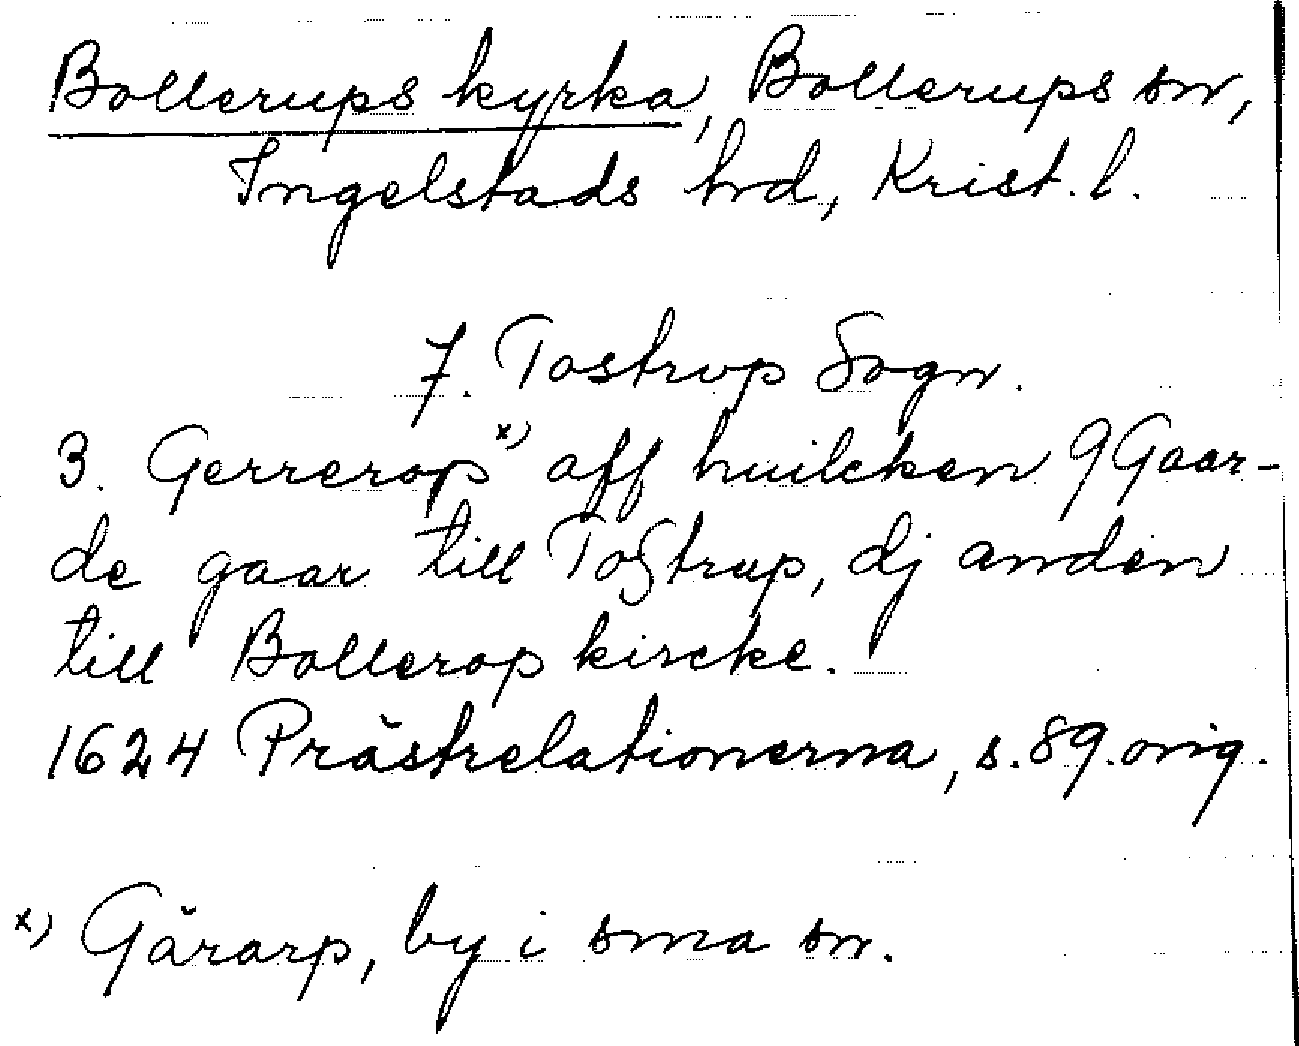 Bollerups kyrka, Bollerups sn,
Ingelstads hrd, Krist. l.
7. Tostrup Sogn.
3. Gerrerop x) aff huilcken 9 Gaar-
de gaar till Toßtrup, dj anden
till Bollerop kircke.
1624 Prästrelationerna, s. 89. orig.
x) Gärarp, by i sma sn.